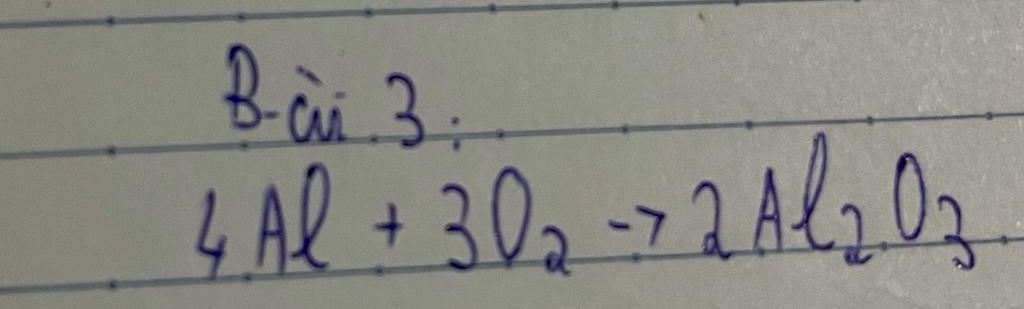 Bài 3:
4Al + 3O₂ → 2Al₂O₃